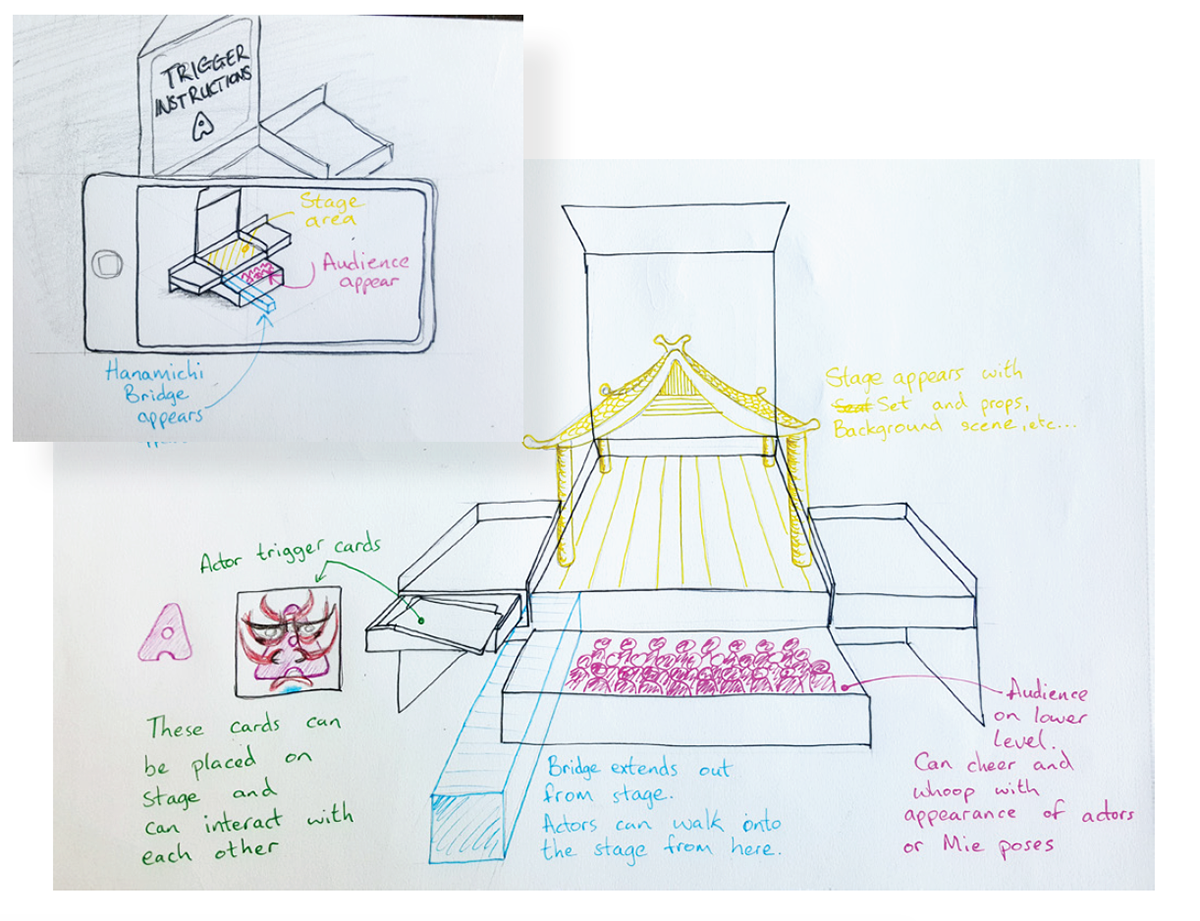 TRIGGER
INSTRUCTIONS
A
Stage
area
Audience
appear
Hanamichi
Bridge
appears
Stage appears with
Seat Set and props,
Background scene, etc...
Actor trigger cards
A
These cards can
be placed on
stage and
can interact with
each other
Bridge extends out
from stage.
Actors can walk onto
the stage from here.
Audience
on lower
level.
Can cheer and
whoop with
appearance of actors
or Mie poses